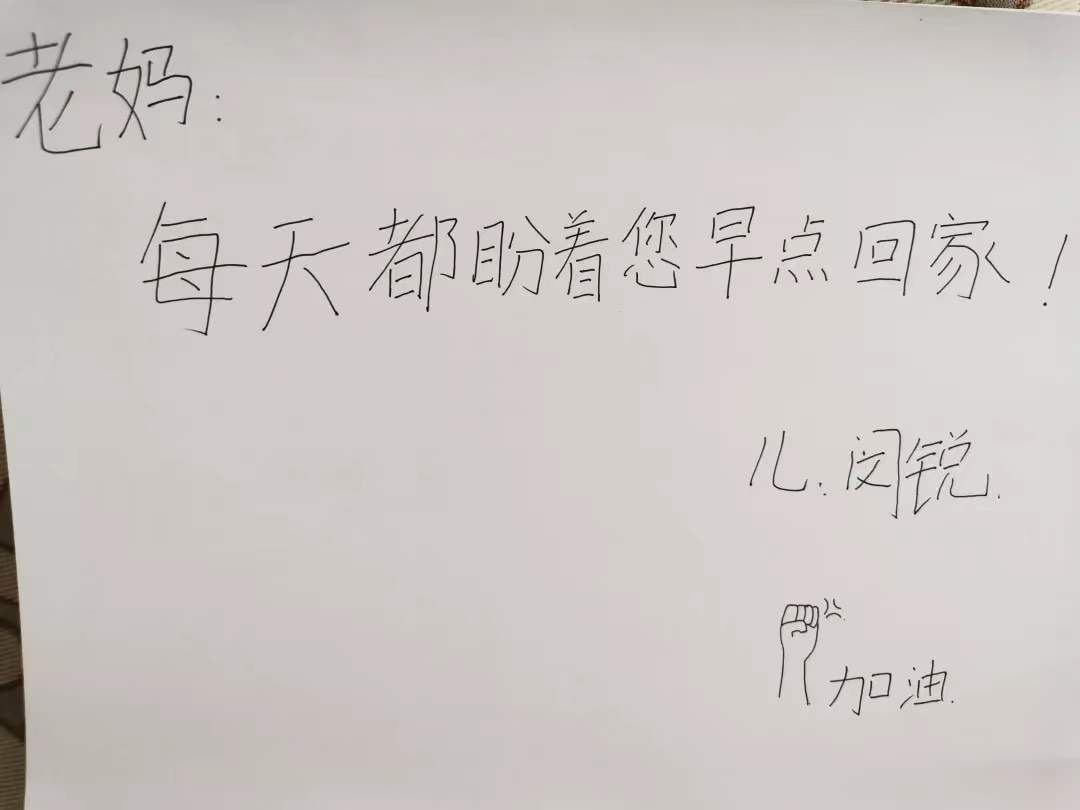 老妈:
每天都盼着您早点回家!
儿:闵锐.
加油.